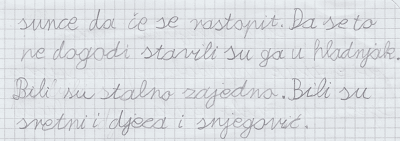 sunce da će se rastopit. Da se to
ne dogodi stavili su ga u hladnjak.
Bili su stalno zajedno. Bili su
sretni i djeca i snjegović.